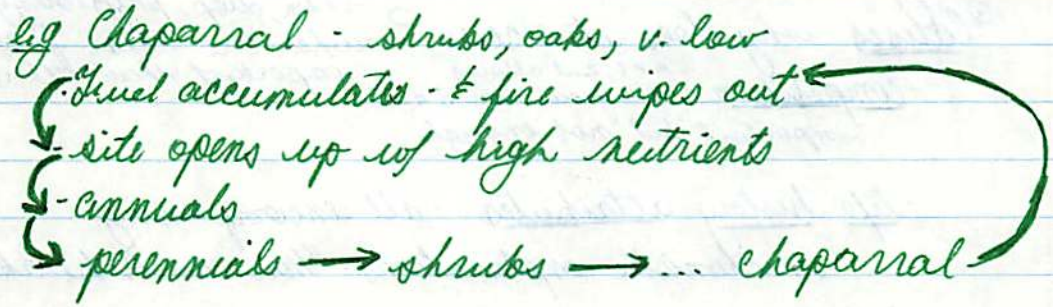 eg Chaparral - shrubs, oaks, v. low
- Fuel accumulates - & fire wipes out
- site opens up w/ high nutrients
- annuals
perennials → shrubs → ... chaparral